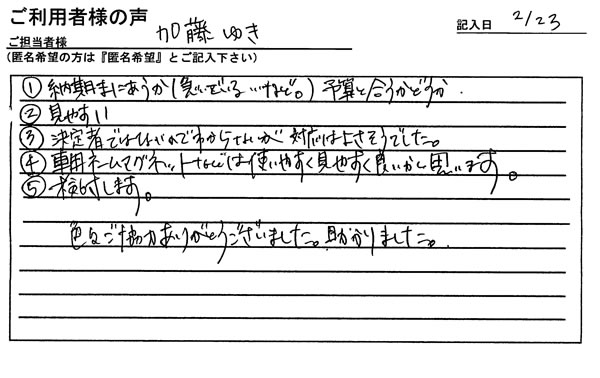 ご利用者様の声
記入日 2/23
ご担当者様 加藤 ゆき
(匿名希望の方は『匿名希望』とご記入下さい)
① 納期まにあうか(急いでいる…など。) 予算と合うかどうか.
② 見やすい
③ 決定者ではないのでわからないが 対応はよさそうでした。
④ 車用ネームマグネットなどは使いやすく見やすく良いかと思います。
⑤ 検討します。
色々ご協力ありがとうございました。助かりました。